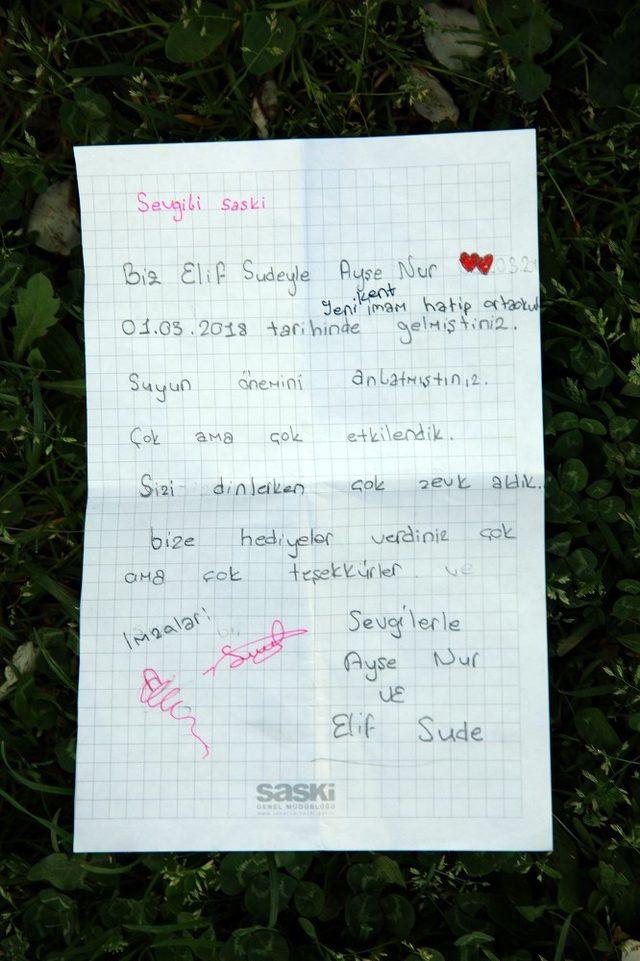 Sevgili saski
Biz Elif Sudeyle Ayşe Nur
Yenikent imam hatip ortaokul
01.03.2018 tarihinde gelmiştiniz.
Suyun önemini anlatmıştınız.
Çok ama çok etkilendik.
Sizi dinlerken çok zevk aldık.
bize hediyeler verdiniz çok
ama çok teşekkürler ve
İmzalar:
Sevgilerle
Ayşe Nur
ve
Elif Sude
SASKİ
GENEL MÜDÜRLÜĞÜ